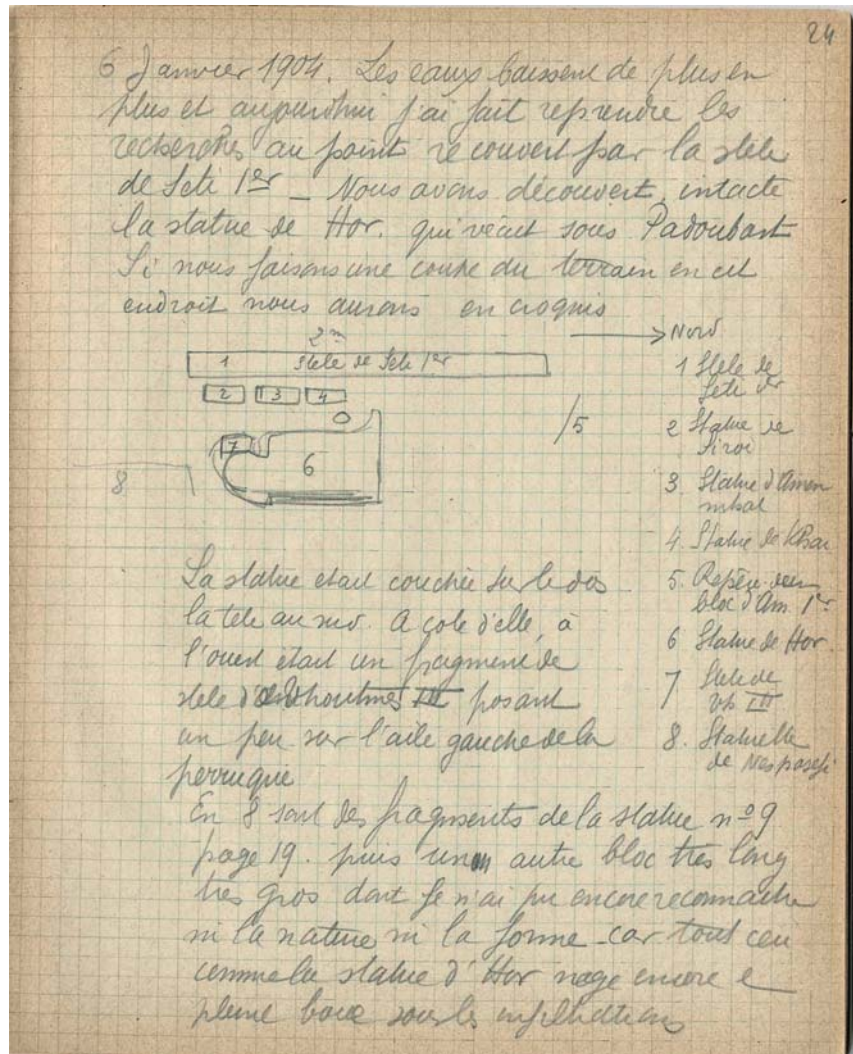 24
6 Janvier 1904. Les eaux baissent de plus en
plus et aujourdhui j'ai fait reprendre les
recherches au point recouvert par la stele
de Seti 1er _ Nous avons découvert, intacte
la statue de Hor. qui vécut sous Padoubast
Si nous faisons une coupe du terrain en cet
endroit nous aurons en croquis
2m
→ Nord
1 Stele de Seti 1er
2 3 4
/5
7
6
8
1 Stele de
Seti 1er
2 Statue de
Siroi
3. Statue d'Amen
mhat
4. Statue de Khai
5. Repère
bloc d'Am. 1er
6 Statue de Hor
7 Stele de
Th III
8. Statuette
de
La statue etait couchée sur le dos
la tete au sud. A coté d'elle, à
l'ouest était un fragment de
stele d' Thoutmes III posant
un peu sur l'aile gauche de la
perruque
En 8 sont des fragments de la statue nº 9
page 19. puis un autre bloc tres long
tres gros dont je n'ai pu encore reconnaitre
ni la nature ni la forme car tout ceci
comme la statue d'Hor nage encore e
pleine boue sous les infiltrations